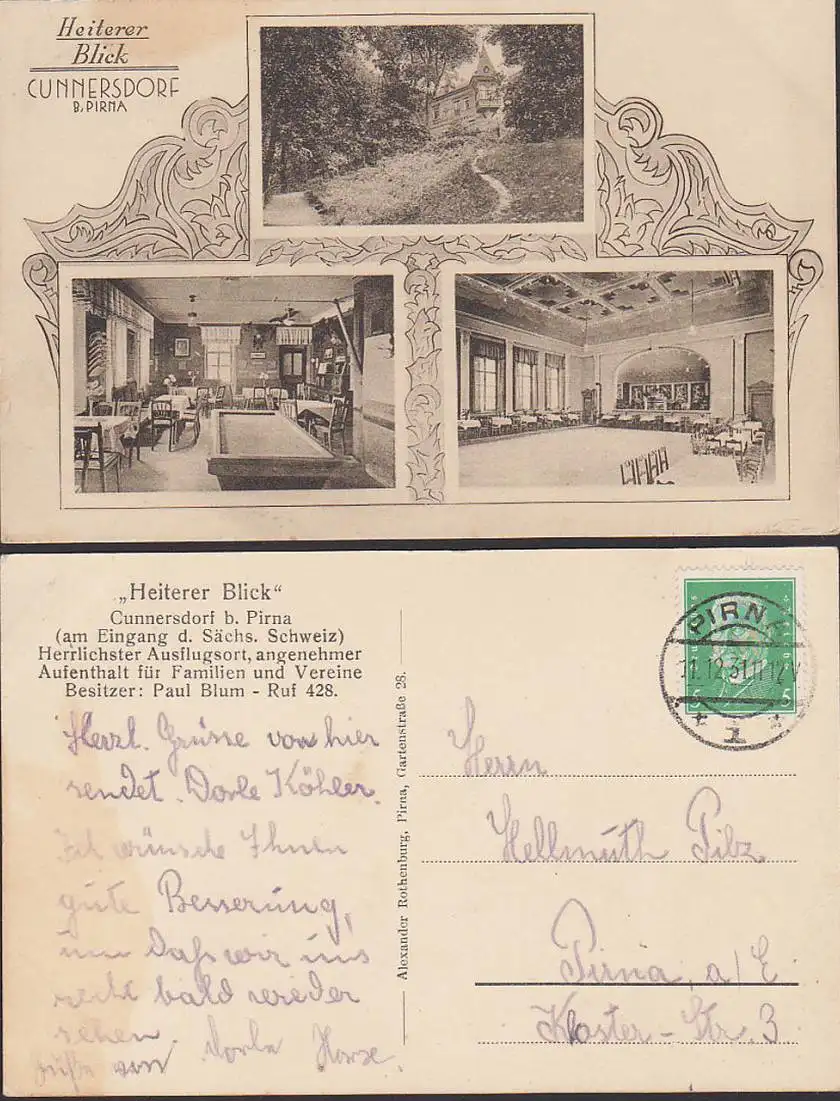 Heiterer
Blick
CUNNERSDORF
B. PIRNA
„Heiterer Blick“
Cunnersdorf b. Pirna
(am Eingang d. Sächs. Schweiz)
Herrlichster Ausflugsort, angenehmer
Aufenthalt für Familien und Vereine
Besitzer: Paul Blum - Ruf 428.
Herzl. Grüsse von hier
sendet. Dorle Köhler.
Ich wünsche Ihnen
gute Besserung,
und daß wir uns
recht bald wieder
sehen.
von Dorle
Alexander Rothenburg, Pirna, Gartenstraße 28.
PIRNA
12.31
1
5 5
Herrn
Hellmuth Pilz
Pirna, a/E
Kloster-Str. 3